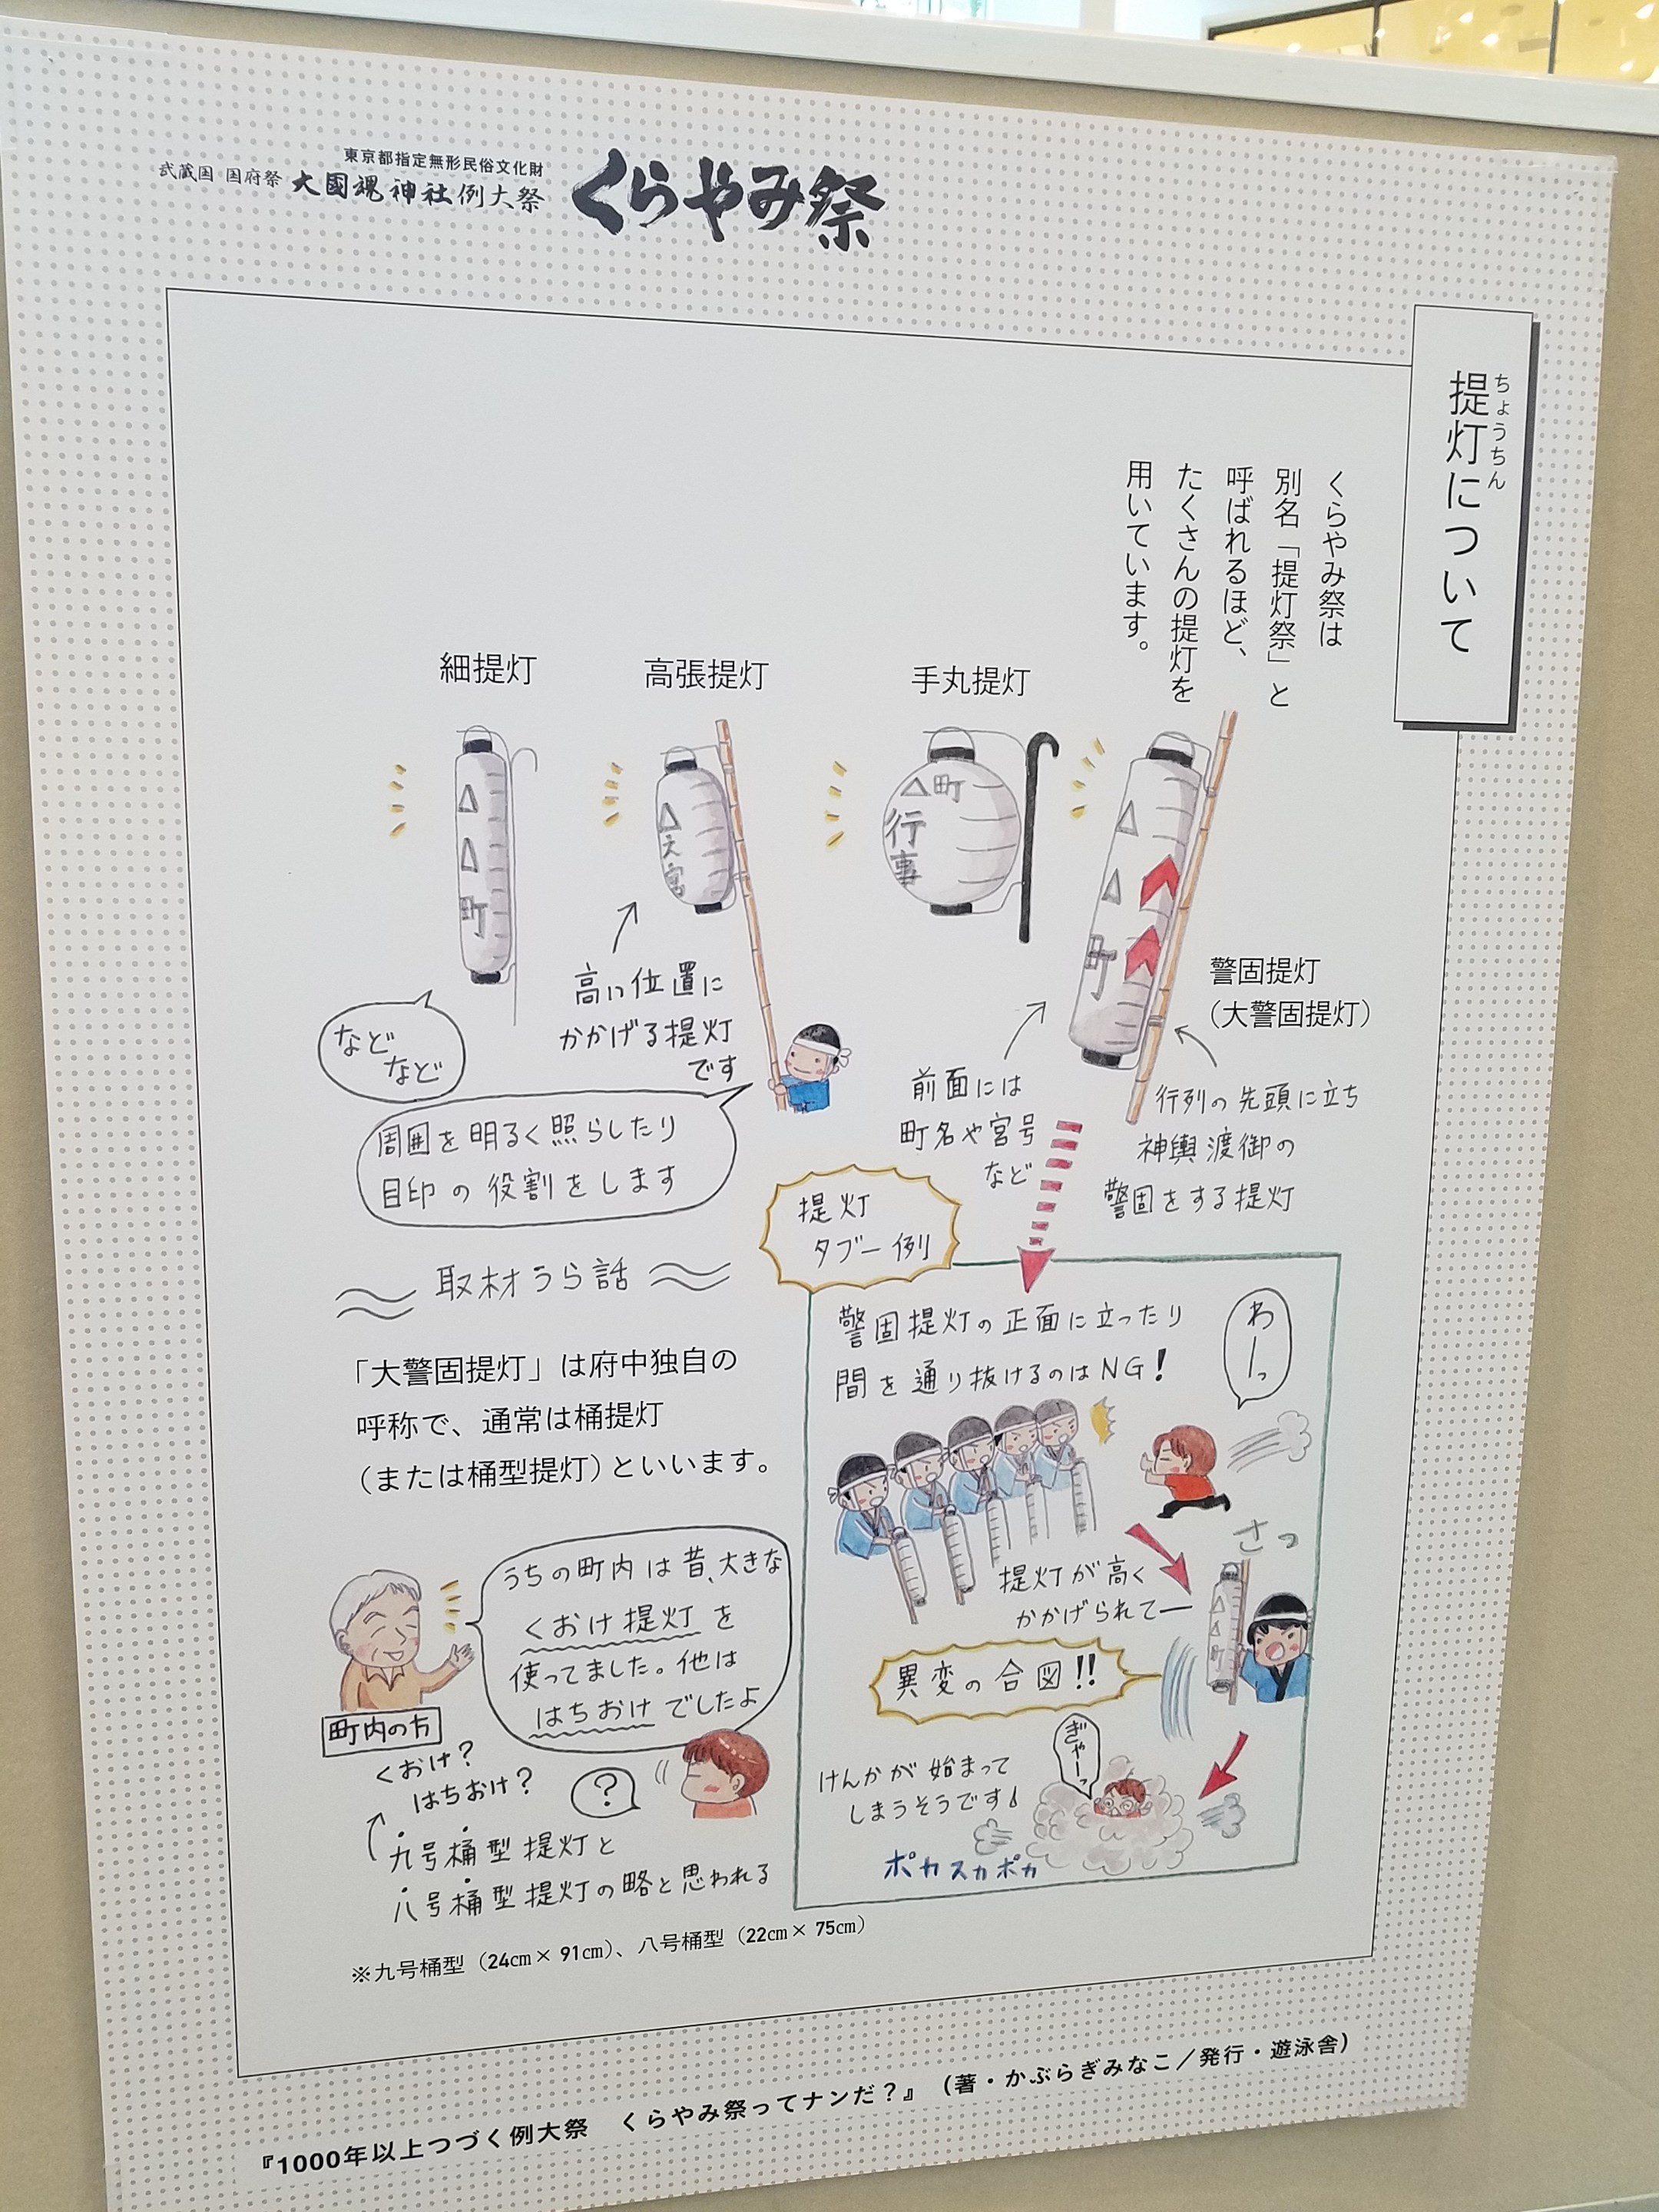 東京都指定無形民俗文化財
武蔵国 国府祭 大國魂神社例大祭
くらやみ祭
提灯について
ちょうちん
くらやみ祭は
別名「提灯祭」と
呼ばれるほど、
たくさんの提灯を
用いています。
警固提灯
（大警固提灯）
△△町
行列の先頭に立ち
神輿渡御の
警固をする提灯
前面には
町名や宮号
など
手丸提灯
△町
行事
高張提灯
△大宮
高い位置に
かかげる提灯
です
細提灯
△△町
などなど
周囲を明るく照らしたり
目印の役割をします
提灯
タブー例
警固提灯の正面に立ったり
間を通り抜けるのはNG!
わーっ
さっ
提灯が高く
かかげられてー
△△町
異変の合図!!
ぎゃーっ
けんかが始まって
しまうそうです
ポカスカポカ
取材うら話
「大警固提灯」は府中独自の
呼称で、通常は桶提灯
（または桶型提灯）といいます。
うちの町内は昔、大きな
くおけ提灯を
使ってました。他は
はちおけでしたよ
町内の方
くおけ?
はちおけ?
?
九号桶型提灯と
八号桶型提灯の略と思われる
※九号桶型（24㎝×91㎝）、八号桶型（22㎝×75㎝）
『1000年以上つづく例大祭 くらやみ祭ってナンだ？』（著・かぶらぎみなこ／発行・遊泳舎）